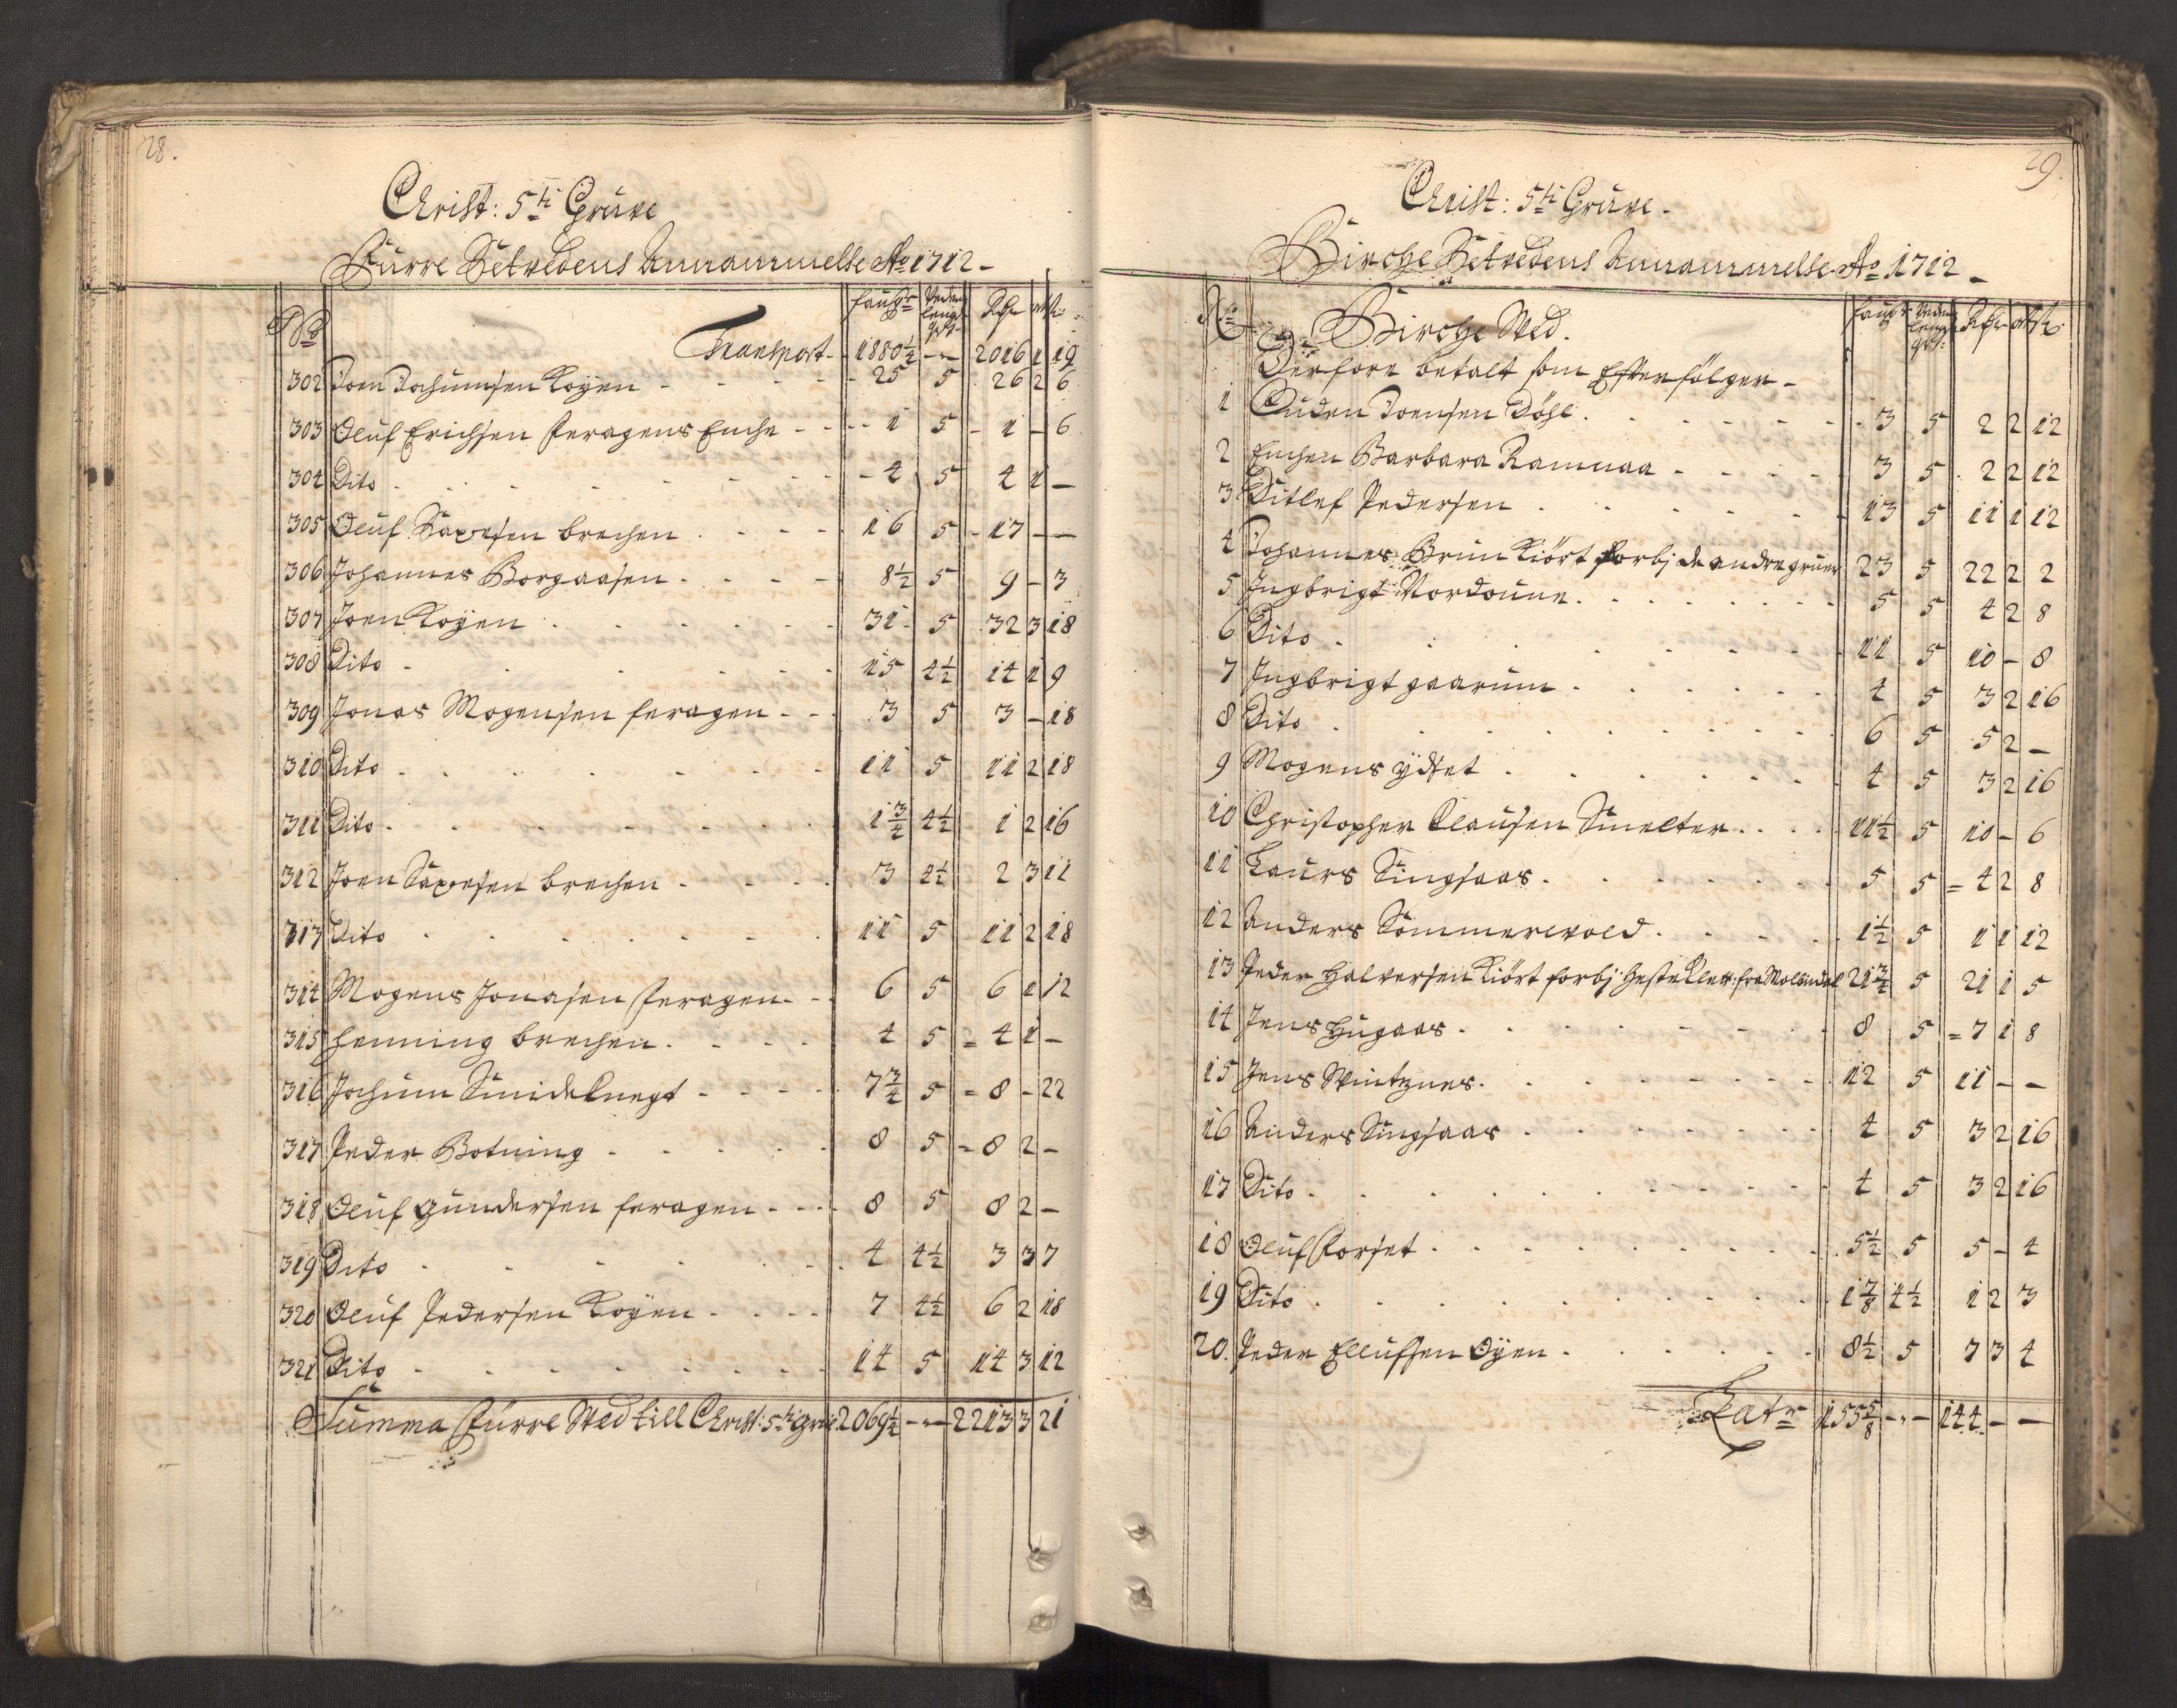 28.
Christ: 5ti Gruve
Furre Setvedens Annammelse Ao 1712 -
No fauger Veden lengd qrt: Rdr ort sk:
Transport - 1880½ - - 2016 1 19
302 Joen Jochumsen Koyen - 25 5 26 2 6
303 Oluf Erichsen feragens Enche - 1 5 - 1 - 6
304 Dito - 4 5 4 1 -
305 Oluf Saxesen brechen - 16 5 - 17 - -
306 Johannes Borgaasen - 8½ 5 9 - 3
307 Joen Koyen - 31 - 5 32 3 18
308 Dito - 15 4½ 14 1 9
309 Jonas Mogensen feragen - 3 5 3 - 18
310 Dito - 11 5 11 2 18
311 Dito - 1¾ 4½ 1 2 16
312 Joen Saxesen brechen - 3 4½ 2 3 11
313 Dito - 11 5 11 2 18
314 Mogens Jonasen feragen - 6 5 6 1 12
315 Henning brechen - 4 5 = 4 1 -
316 Jochum Smideknegt - 7¾ 5 = 8 - 22
317 Peder Botning - 8 5 = 8 2 -
318 Oluf Gundersen feragen - 8 5 8 2 -
319 Dito - 4 4½ 3 3 7
320 Oluf Pedersen Koyen - 7 4½ 6 2 18
321 Dito - 14 5 14 3 12
Summa furre Wed till Christ: 5ti Gru: 2069½ - - 2213 3 21
29.
Christ: 5ti Gruve -
Birche Setvedens Annammelse Ao 1712 -
No Birche Wed. faugr Veden lengd qrt: Rdr ort sk:
Derfore betalt som Efterfölger -
1 Ouden Joensen Döhl - 3 5 2 2 12
2 Enchen Barbara Ramnaa - 3 5 2 2 12
3 Ditlef Pedersen - 13 5 11 1 12
4 Johannes Brun Kiört forbj de andre gruer 23 5 22 2 2
5 Ingbrigt Nordoune - 5 5 4 2 8
6 Dito - 11 5 10 - 8
7 Ingbrigt gaarum - 4 5 3 2 16
8 Dito - 6 5 5 2 -
9 Mogens ydset - 4 5 3 2 16
10 Christopher Clausen Smelter - 11½ 5 10 - 6
11 Laurs Singsaas - 5 5 = 4 2 8
12 Anders Sommerwold - 1½ 5 1 1 12
13 Peder Halversen Kiört forbj Heste Klet: fra 21¾ 5 21 1 5
14 Jens Hugaas - 8 5 = 7 1 8
15 Jens Wintznes - 12 5 11 - -
16 Anders Singsaas - 4 5 3 2 16
17 Dito - 4 5 3 2 16
18 Oluf forset - 5½ 5 5 - 4
19 Dito - 1⅞ 4½ 1 2 3
20. Peder Ellufsen Öyen - 8½ 5 7 3 4
Latr 155⅝ - - 144 - -